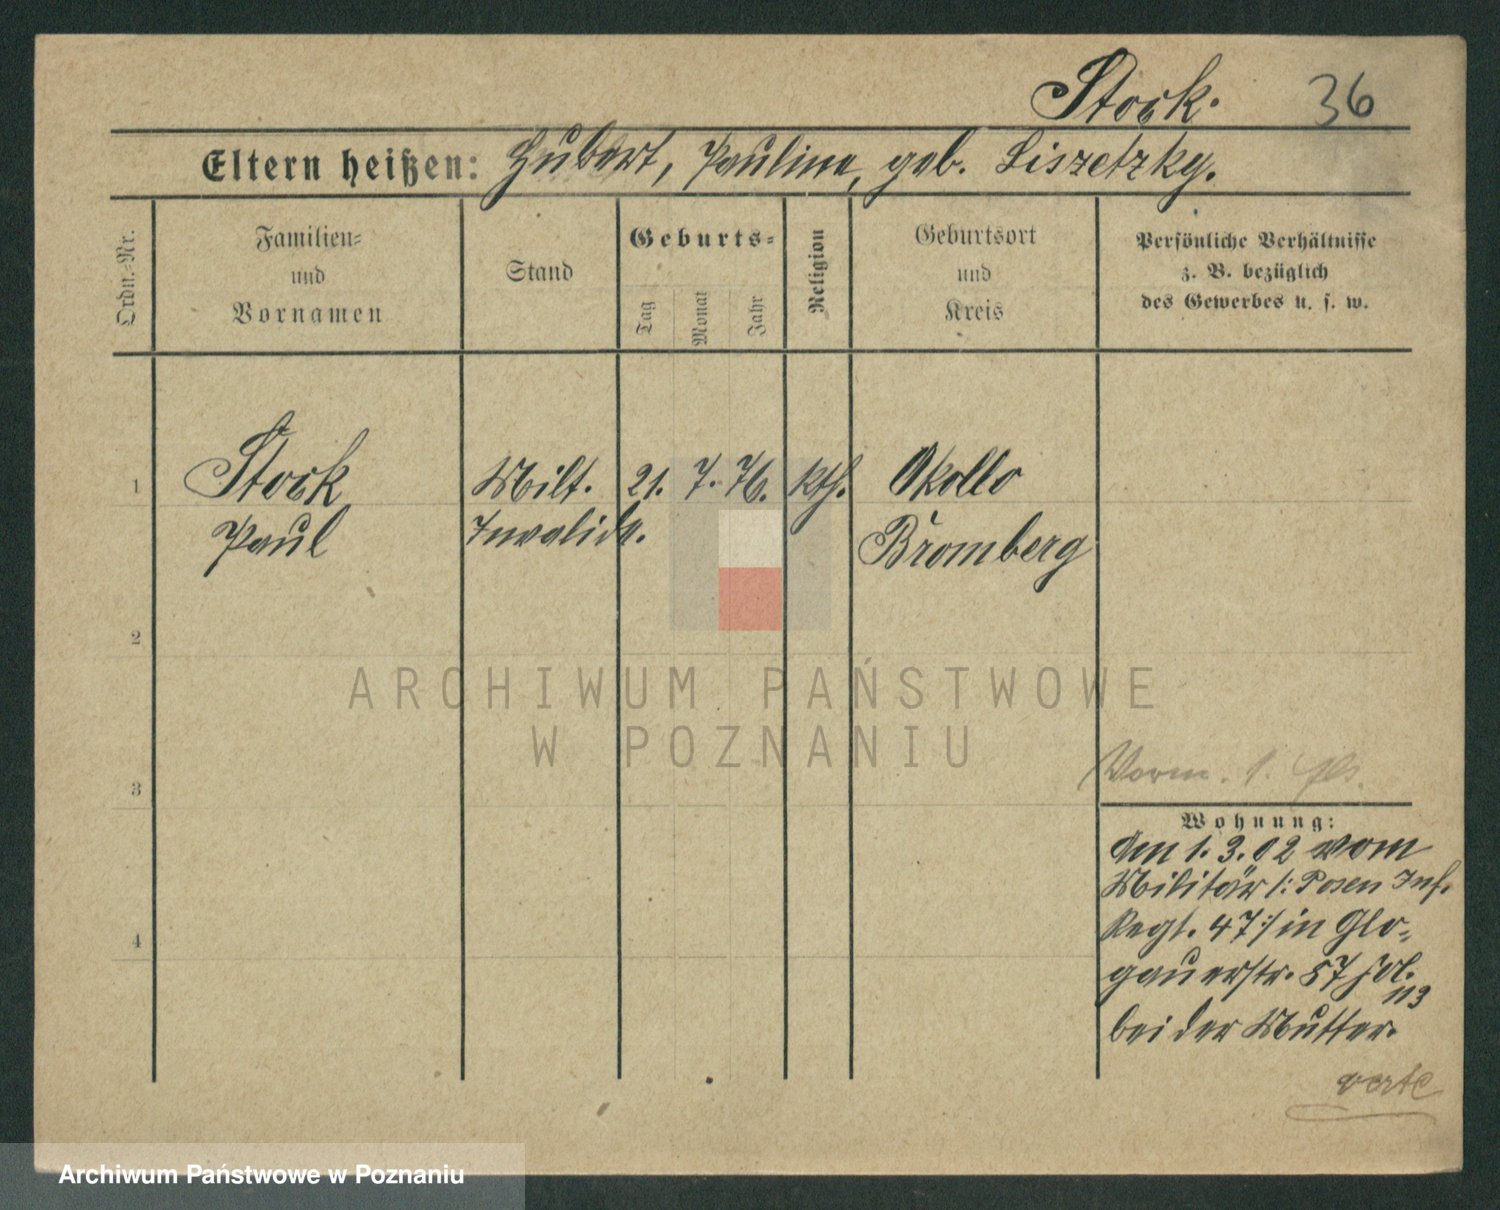 Stock. 36
Eltern heißen: Hubert, Pauline, geb. Liszetzky.
Ordn.-Nr.
Familien-
und
Vornamen
Stand
Geburts-
Tag
Monat
Jahr
Religion
Geburtsort
und
Kreis
Persönliche Verhältnisse
z. B. bezüglich
des Gewerbes u. s. w.
1 Stock Milt. 21. 7. 76. kth. Okollo
Paul Invalide. Bromberg
2
ARCHIWUM PAŃSTWOWE
W POZNANIU
Vorm. 1.
3
Wohnung:
Am 1. 3. 02 vom
Militär /: Posen Inf.
Regt. 47 :/ in Glo-
gauerstr. 57
113
bei der Mutter.
4
verte
Archiwum Państwowe w Poznaniu